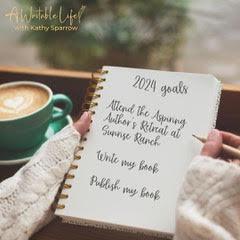 A Writable Life!
with Kathy Sparrow
2024 goals
Attend the Aspiring
Author's Retreat at
Sunrise Ranch
Write my book
Publish my book